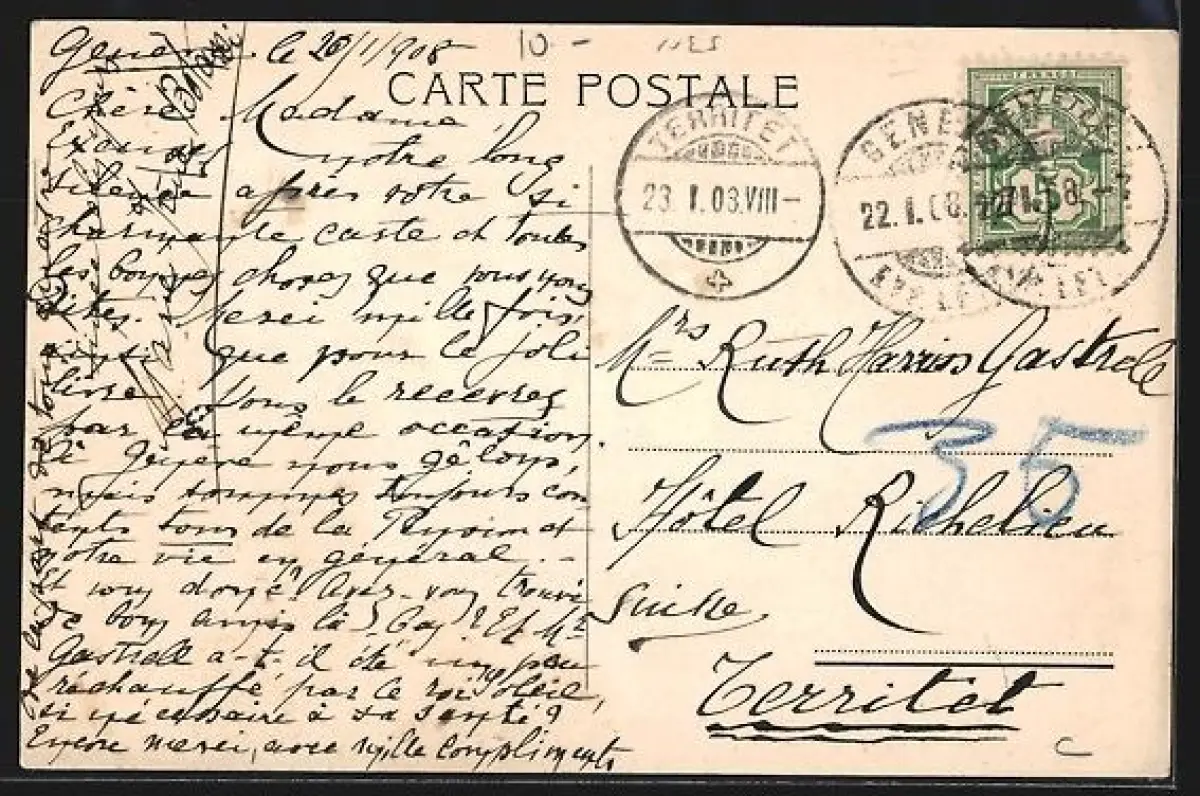 Genève le 20/1/1908
10 -
CARTE POSTALE
Chère Madame
Excusez notre long
silence après votre si
charmante carte et toutes
les bonnes choses que vous nous
dites. Merci mille fois,
ainsi que pour le joli
livre. Vous le recevrez
par la même occasion.
À Genève nous gêlons,
mais sommes toujours con
tents tous de la Pension et
notre vie en général. -
Et vous donc? Avez-vous trouvé
de bons amis là-bas? Et Mr
Gastrell a-t-il été un peu
réchauffé par le roi soleil,
si nécessaire à sa santé?
Encore merci, avec mille compliments
TERRITET
23.I.08.VIII-
GENÈVE
22.I.08.
Mrs Ruth Harrios Gastrell
35
Hôtel Richelieu
Suisse
Territet
c